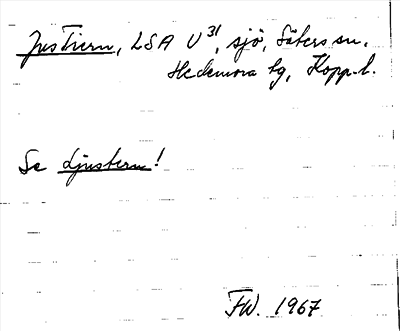 Justiern, LSA U31, sjö, Säters sn.
Hedemora tg, Kopp. l.
Se Ljustern!
FW. 1967